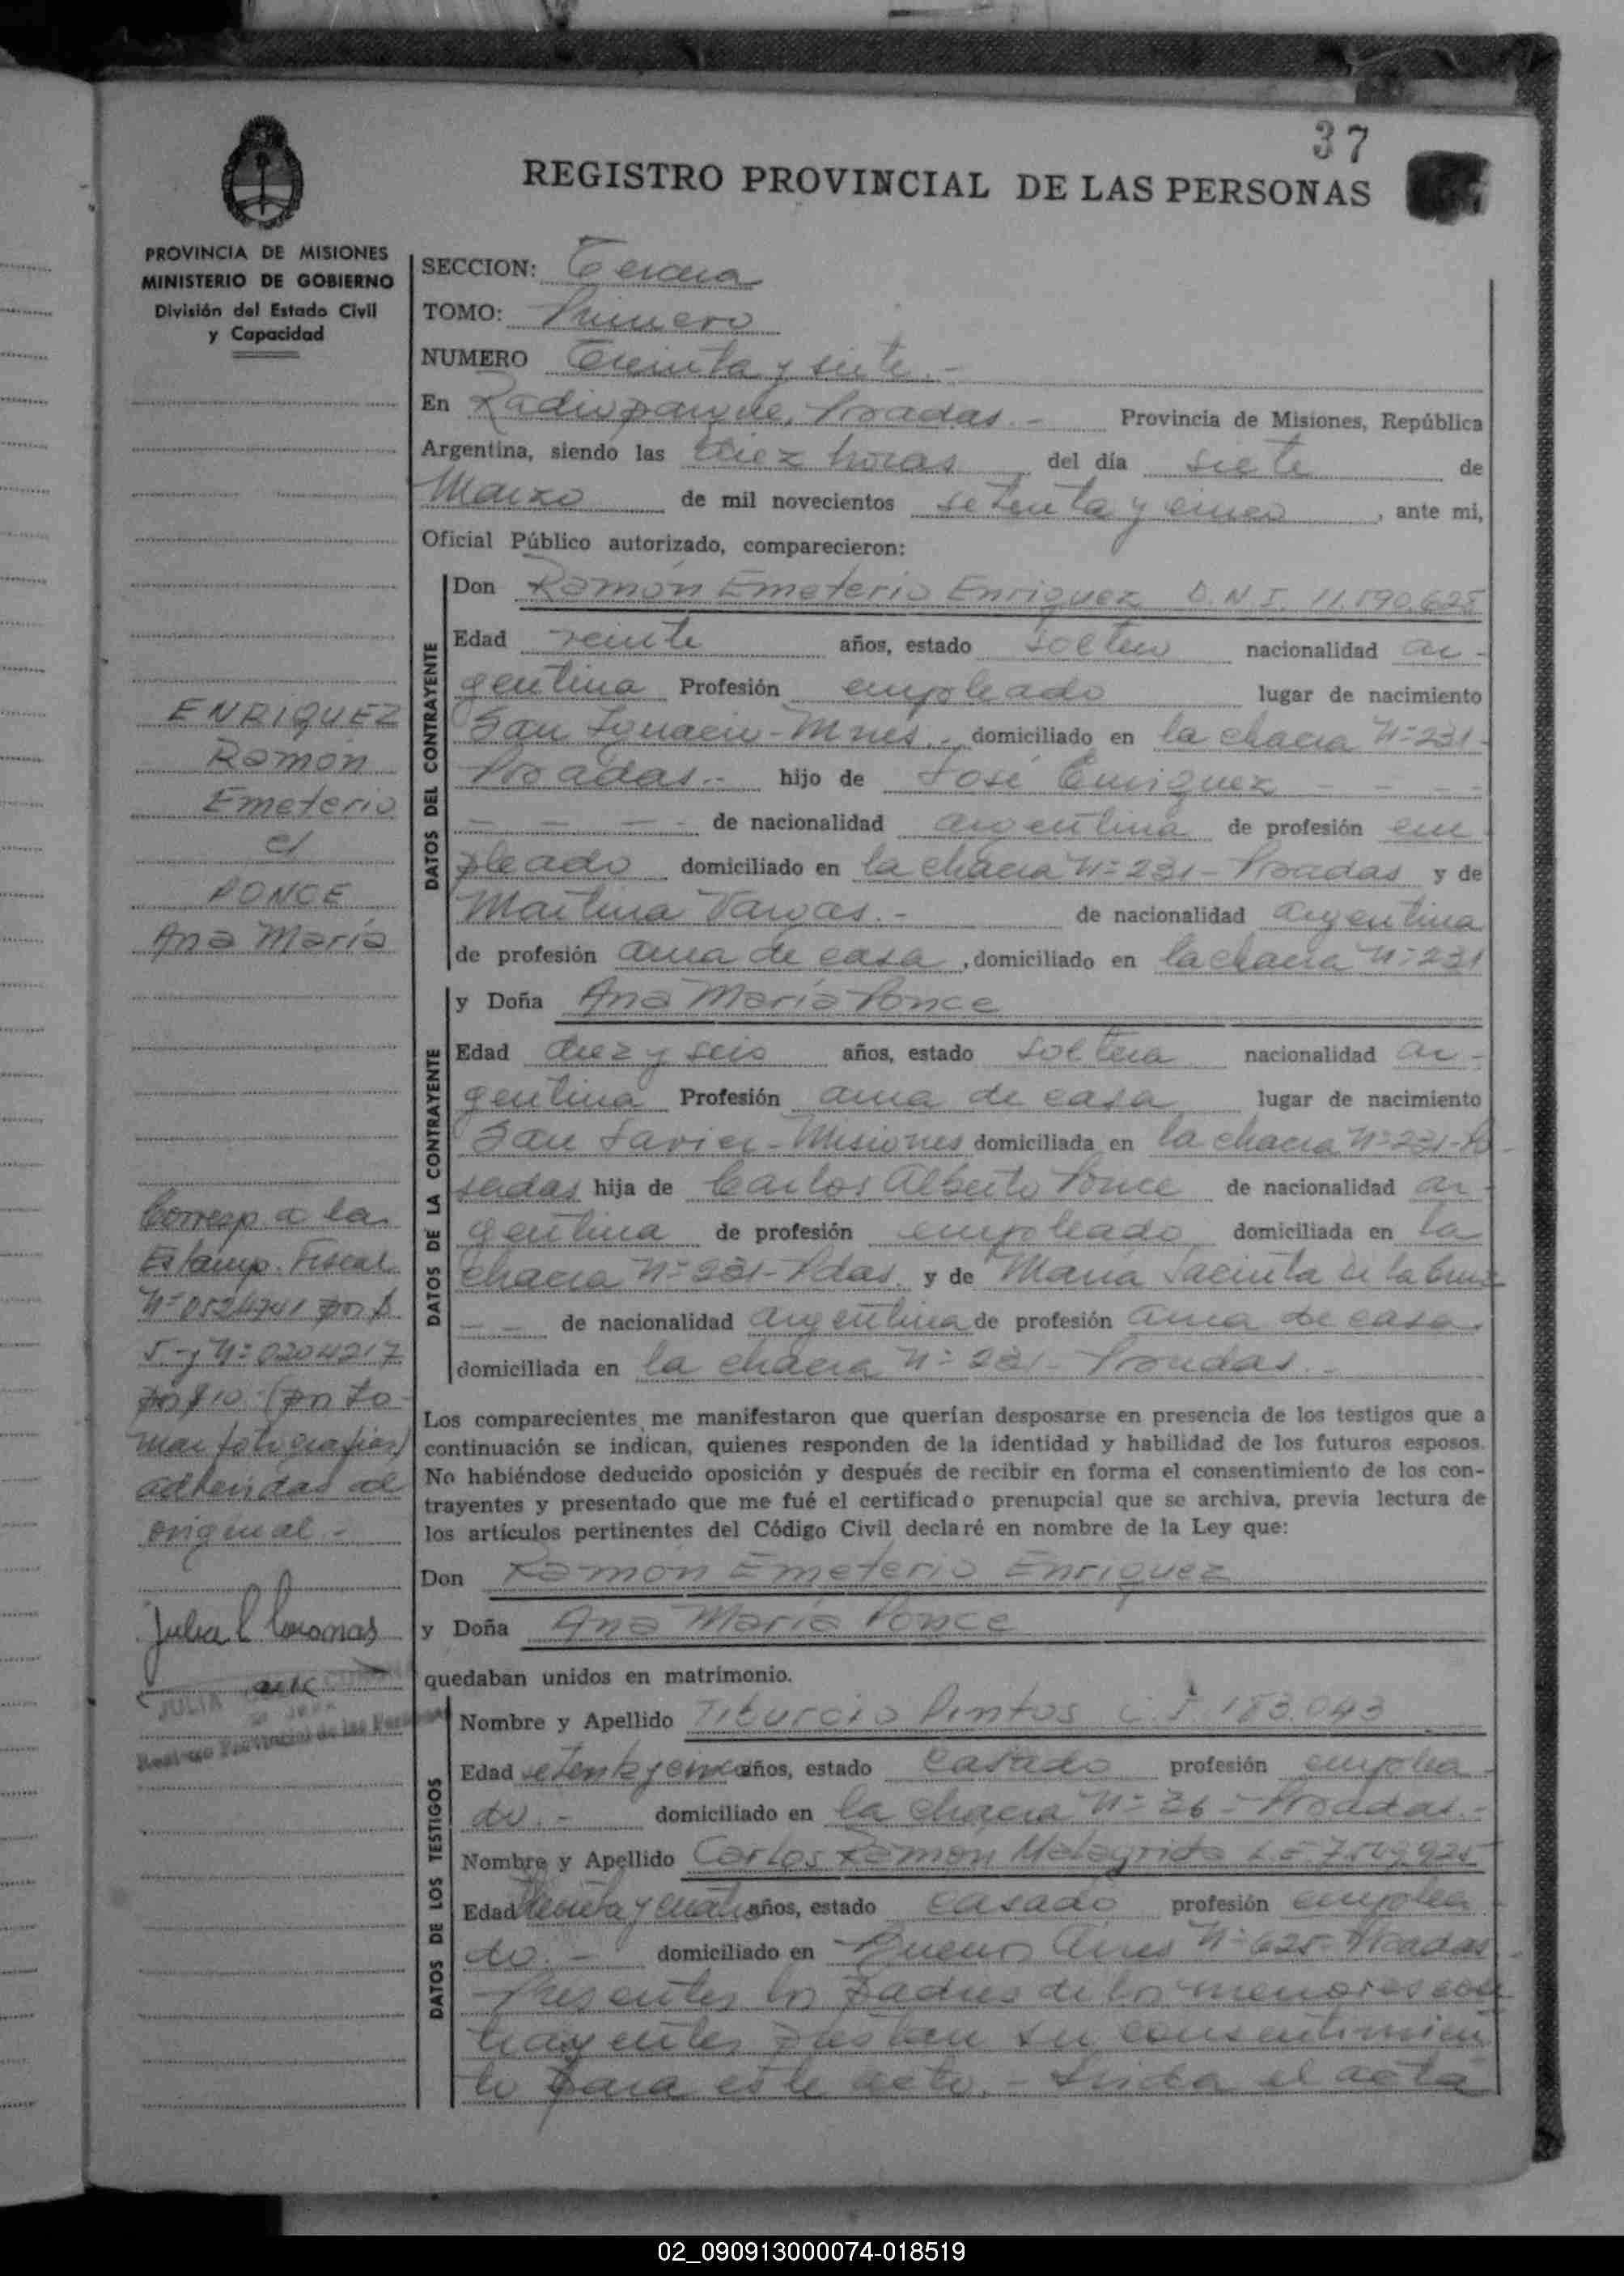 37
REGISTRO PROVINCIAL DE LAS PERSONAS
PROVINCIA DE MISIONES
MINISTERIO DE GOBIERNO
División del Estado Civil
y Capacidad
ENRIQUEZ
Ramón
Emeterio
c/
PONCE
Ana María
Corresp. a la
Estamp. Fiscal
Nº 0524741 por $
5.- y Nº 0204217
por $10.- (por to
mar fotografias)
adheridas al
original.-
Julia C
JULIA
Registro Provincial de las Personas
SECCION: Tercera
TOMO: Primero
NUMERO Treinta y siete.-
En Radioparque, Posadas.- Provincia de Misiones, República
Argentina, siendo las diez horas del día siete de
Marzo de mil novecientos setenta y cinco, ante mi,
Oficial Público autorizado, comparecieron:
DATOS DEL CONTRAYENTE
Don Ramón Emeterio Enriquez D.N.I. 11.590.625
Edad veinte años, estado soltero nacionalidad ar-
gentina Profesión empleado lugar de nacimiento
San Ignacio-Mnes.-, domiciliado en la chacra Nº 231-
Posadas.- hijo de José Enriquez - - - -
- - - - de nacionalidad argentina de profesión em
pleado domiciliado en la chacra Nº 231- Posadas y de
Martina Vargas.- de nacionalidad argentina
de profesión ama de casa, domiciliado en la chacra Nº 231
DATOS DE LA CONTRAYENTE
y Doña Ana María Ponce
Edad diez y seis años, estado soltera nacionalidad ar-
gentina Profesión ama de casa lugar de nacimiento
San Javier-Misiones domiciliada en la chacra Nº 231-Po-
sadas hija de Carlos Alberto Ponce de nacionalidad ar-
gentina de profesión empleado domiciliada en la
chacra Nº 231-Pdas. y de María Jacinta de la Cruz
- - de nacionalidad argentina de profesión ama de casa
domiciliada en la chacra Nº 231- Posadas.-
Los comparecientes me manifestaron que querían desposarse en presencia de los testigos que a
continuación se indican, quienes responden de la identidad y habilidad de los futuros esposos.
No habiéndose deducido oposición y después de recibir en forma el consentimiento de los con-
trayentes y presentado que me fué el certificado prenupcial que se archiva, previa lectura de
los artículos pertinentes del Código Civil declaré en nombre de la Ley que:
Don Ramón Emeterio Enriquez
y Doña Ana María Ponce
quedaban unidos en matrimonio.
DATOS DE LOS TESTIGOS
Nombre y Apellido Tiburcio Pintos C.I. 183.043
Edad setenta y cinco años, estado casado profesión emplea-
do.- domiciliado en la chacra Nº 26- Posadas.-
Nombre y Apellido Carlos Ramón Malagrida L.E 7.509.925
Edad treinta y cuatro años, estado casado profesión emplea-
do.- domiciliado en Buenos Aires Nº 625- Posadas.
Presentes los padres de los menores con
trayentes prestan su consentimien
to para este acto.- Leida el acta
02_090913000074-018519